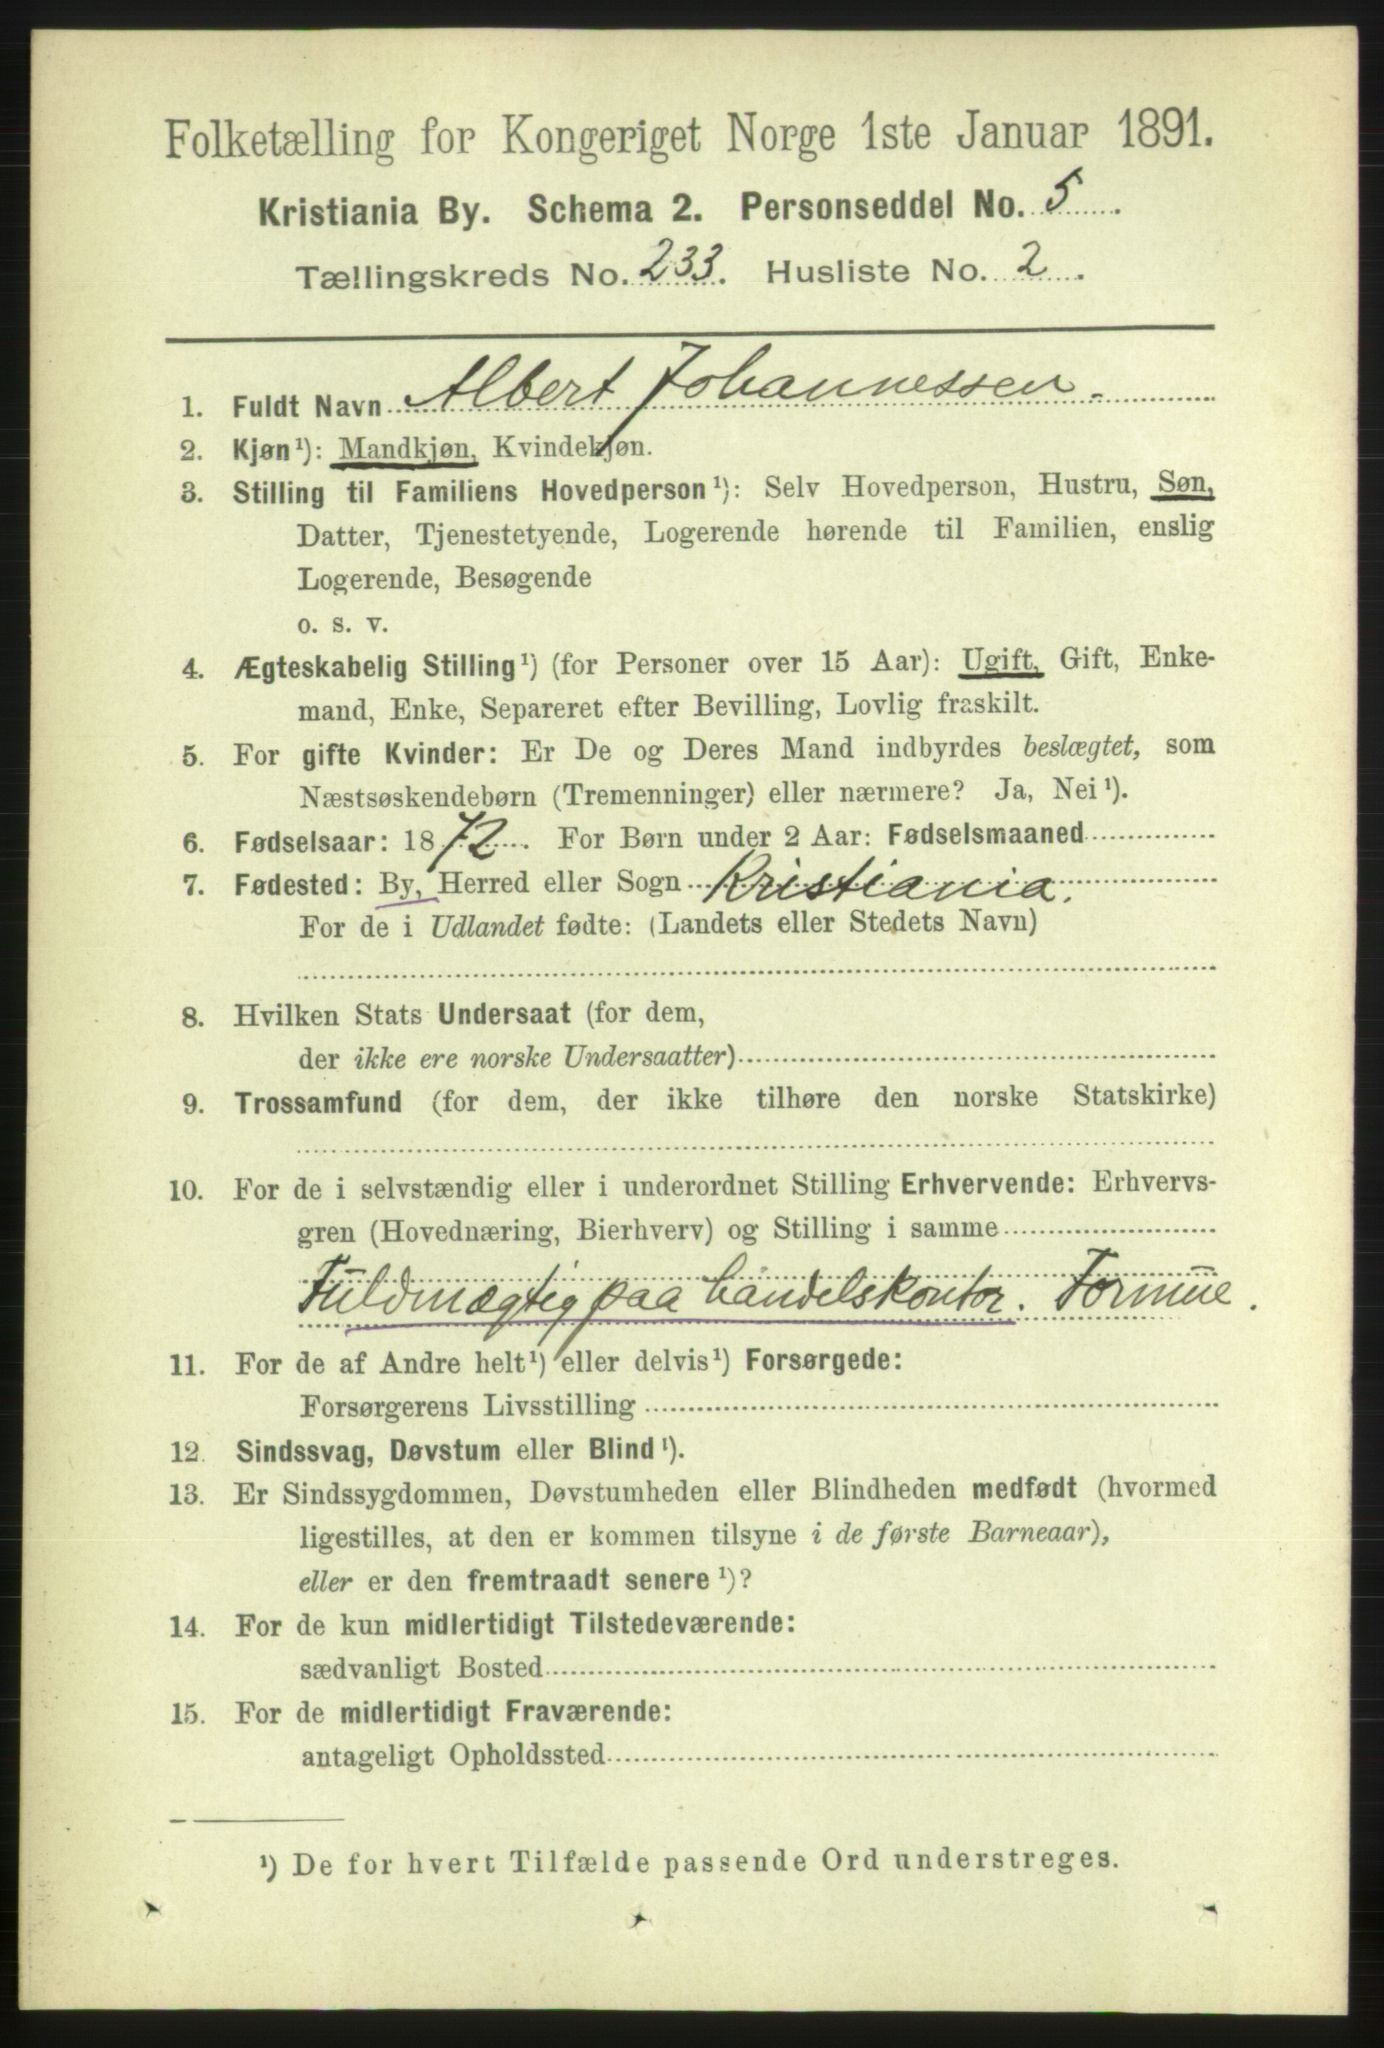 Folketælling for Kongeriget Norge 1ste Januar 1891.
Kristiania By. Schema 2. Personseddel No. 5.
Tællingskreds No. 233. Husliste No. 2.
1. Fuldt Navn Albert Johannessen.
2. Kjøn¹): Mandkjøn, Kvindekjøn.
3. Stilling til Familiens Hovedperson¹): Selv Hovedperson, Hustru, Søn,
Datter, Tjenestetyende, Logerende hørende til Familien, enslig
Logerende, Besøgende
o. s. v.
4. Ægteskabelig Stilling¹) (for Personer over 15 Aar): Ugift, Gift, Enke-
mand, Enke, Separeret efter Bevilling, Lovlig fraskilt.
5. For gifte Kvinder: Er De og Deres Mand indbyrdes beslægtet, som
Næstsøskendebørn (Tremenninger) eller nærmere? Ja, Nei¹).
6. Fødselsaar: 1872. For Børn under 2 Aar: Fødselsmaaned
7. Fødested: By, Herred eller Sogn Kristiania.
For de i Udlandet fødte: (Landets eller Stedets Navn)
8. Hvilken Stats Undersaat (for dem,
der ikke ere norske Undersaatter)
9. Trossamfund (for dem, der ikke tilhøre den norske Statskirke)
10. For de i selvstændig eller i underordnet Stilling Erhvervende: Erhvervs-
gren (Hovednæring, Bierhverv) og Stilling i samme
Fuldmægtig paa handelskontor. Formue.
11. For de af Andre helt¹) eller delvis¹) Forsørgede:
Forsørgerens Livsstilling
12. Sindssvag, Døvstum eller Blind¹).
13. Er Sindssygdommen, Døvstumheden eller Blindheden medfødt (hvormed
ligestilles, at den er kommen tilsyne i de første Barneaar),
eller er den fremtraadt senere¹)?
14. For de kun midlertidigt Tilstedeværende:
sædvanligt Bosted
15. For de midlertidigt Fraværende:
antageligt Opholdssted
¹) De for hvert Tilfælde passende Ord understreges.